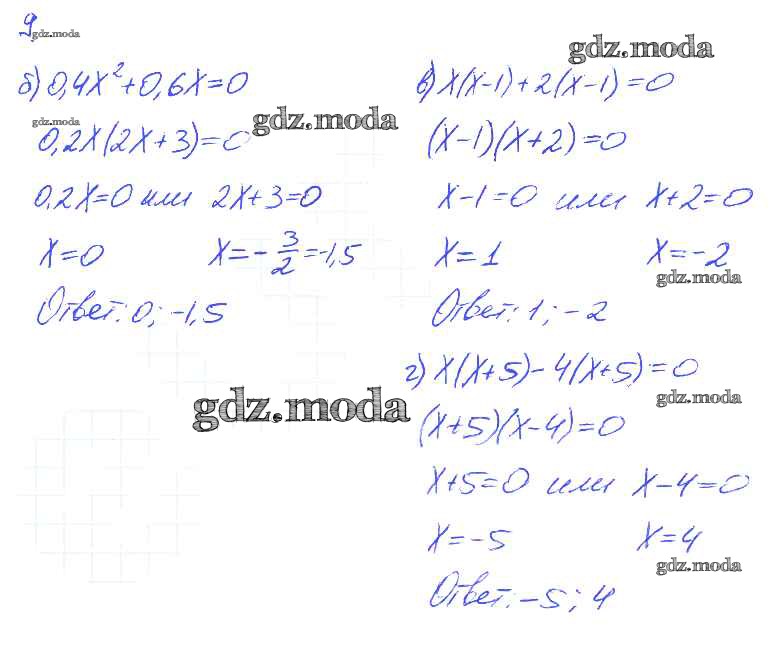 9
gdz.moda
б) 0,4x² + 0,6x = 0
gdz.moda
gdz.moda
0,2x(2x+3) = 0
0,2x = 0 или 2x+3 = 0
x = 0 x = -3/2 = -1,5
Ответ: 0; -1,5
gdz.moda
gdz.moda
в) x(x-1) + 2(x-1) = 0
(x-1)(x+2) = 0
x-1 = 0 или x+2 = 0
x = 1 x = -2
gdz.moda
Ответ: 1; -2
г) x(x+5) - 4(x+5) = 0
gdz.moda
(x+5)(x-4) = 0
x+5 = 0 или x-4 = 0
x = -5 x = 4
gdz.moda
Ответ: -5; 4